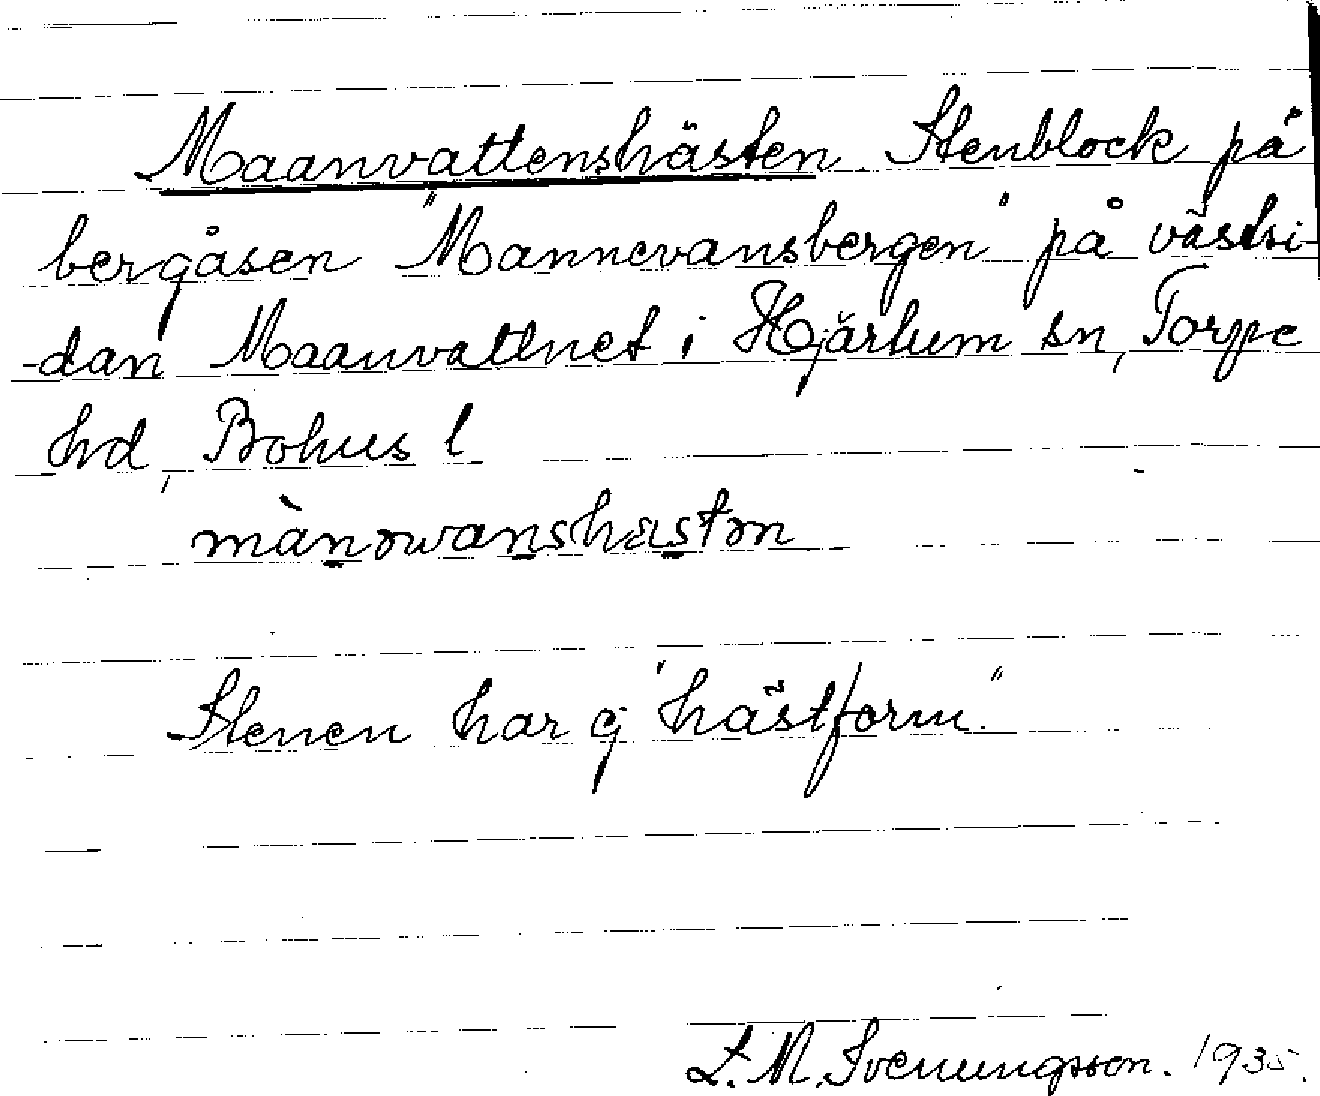 Maanvattenshästen. Stenblock på
bergåsen "Mannevansbergen" på västsi-
-dan Maanvattnet i Hjärtum sn, Torpe
hd, Bohus l
mànɔwanshæstɔn
Stenen har ej "hästform."
L. M. Svenungsson. 1935.